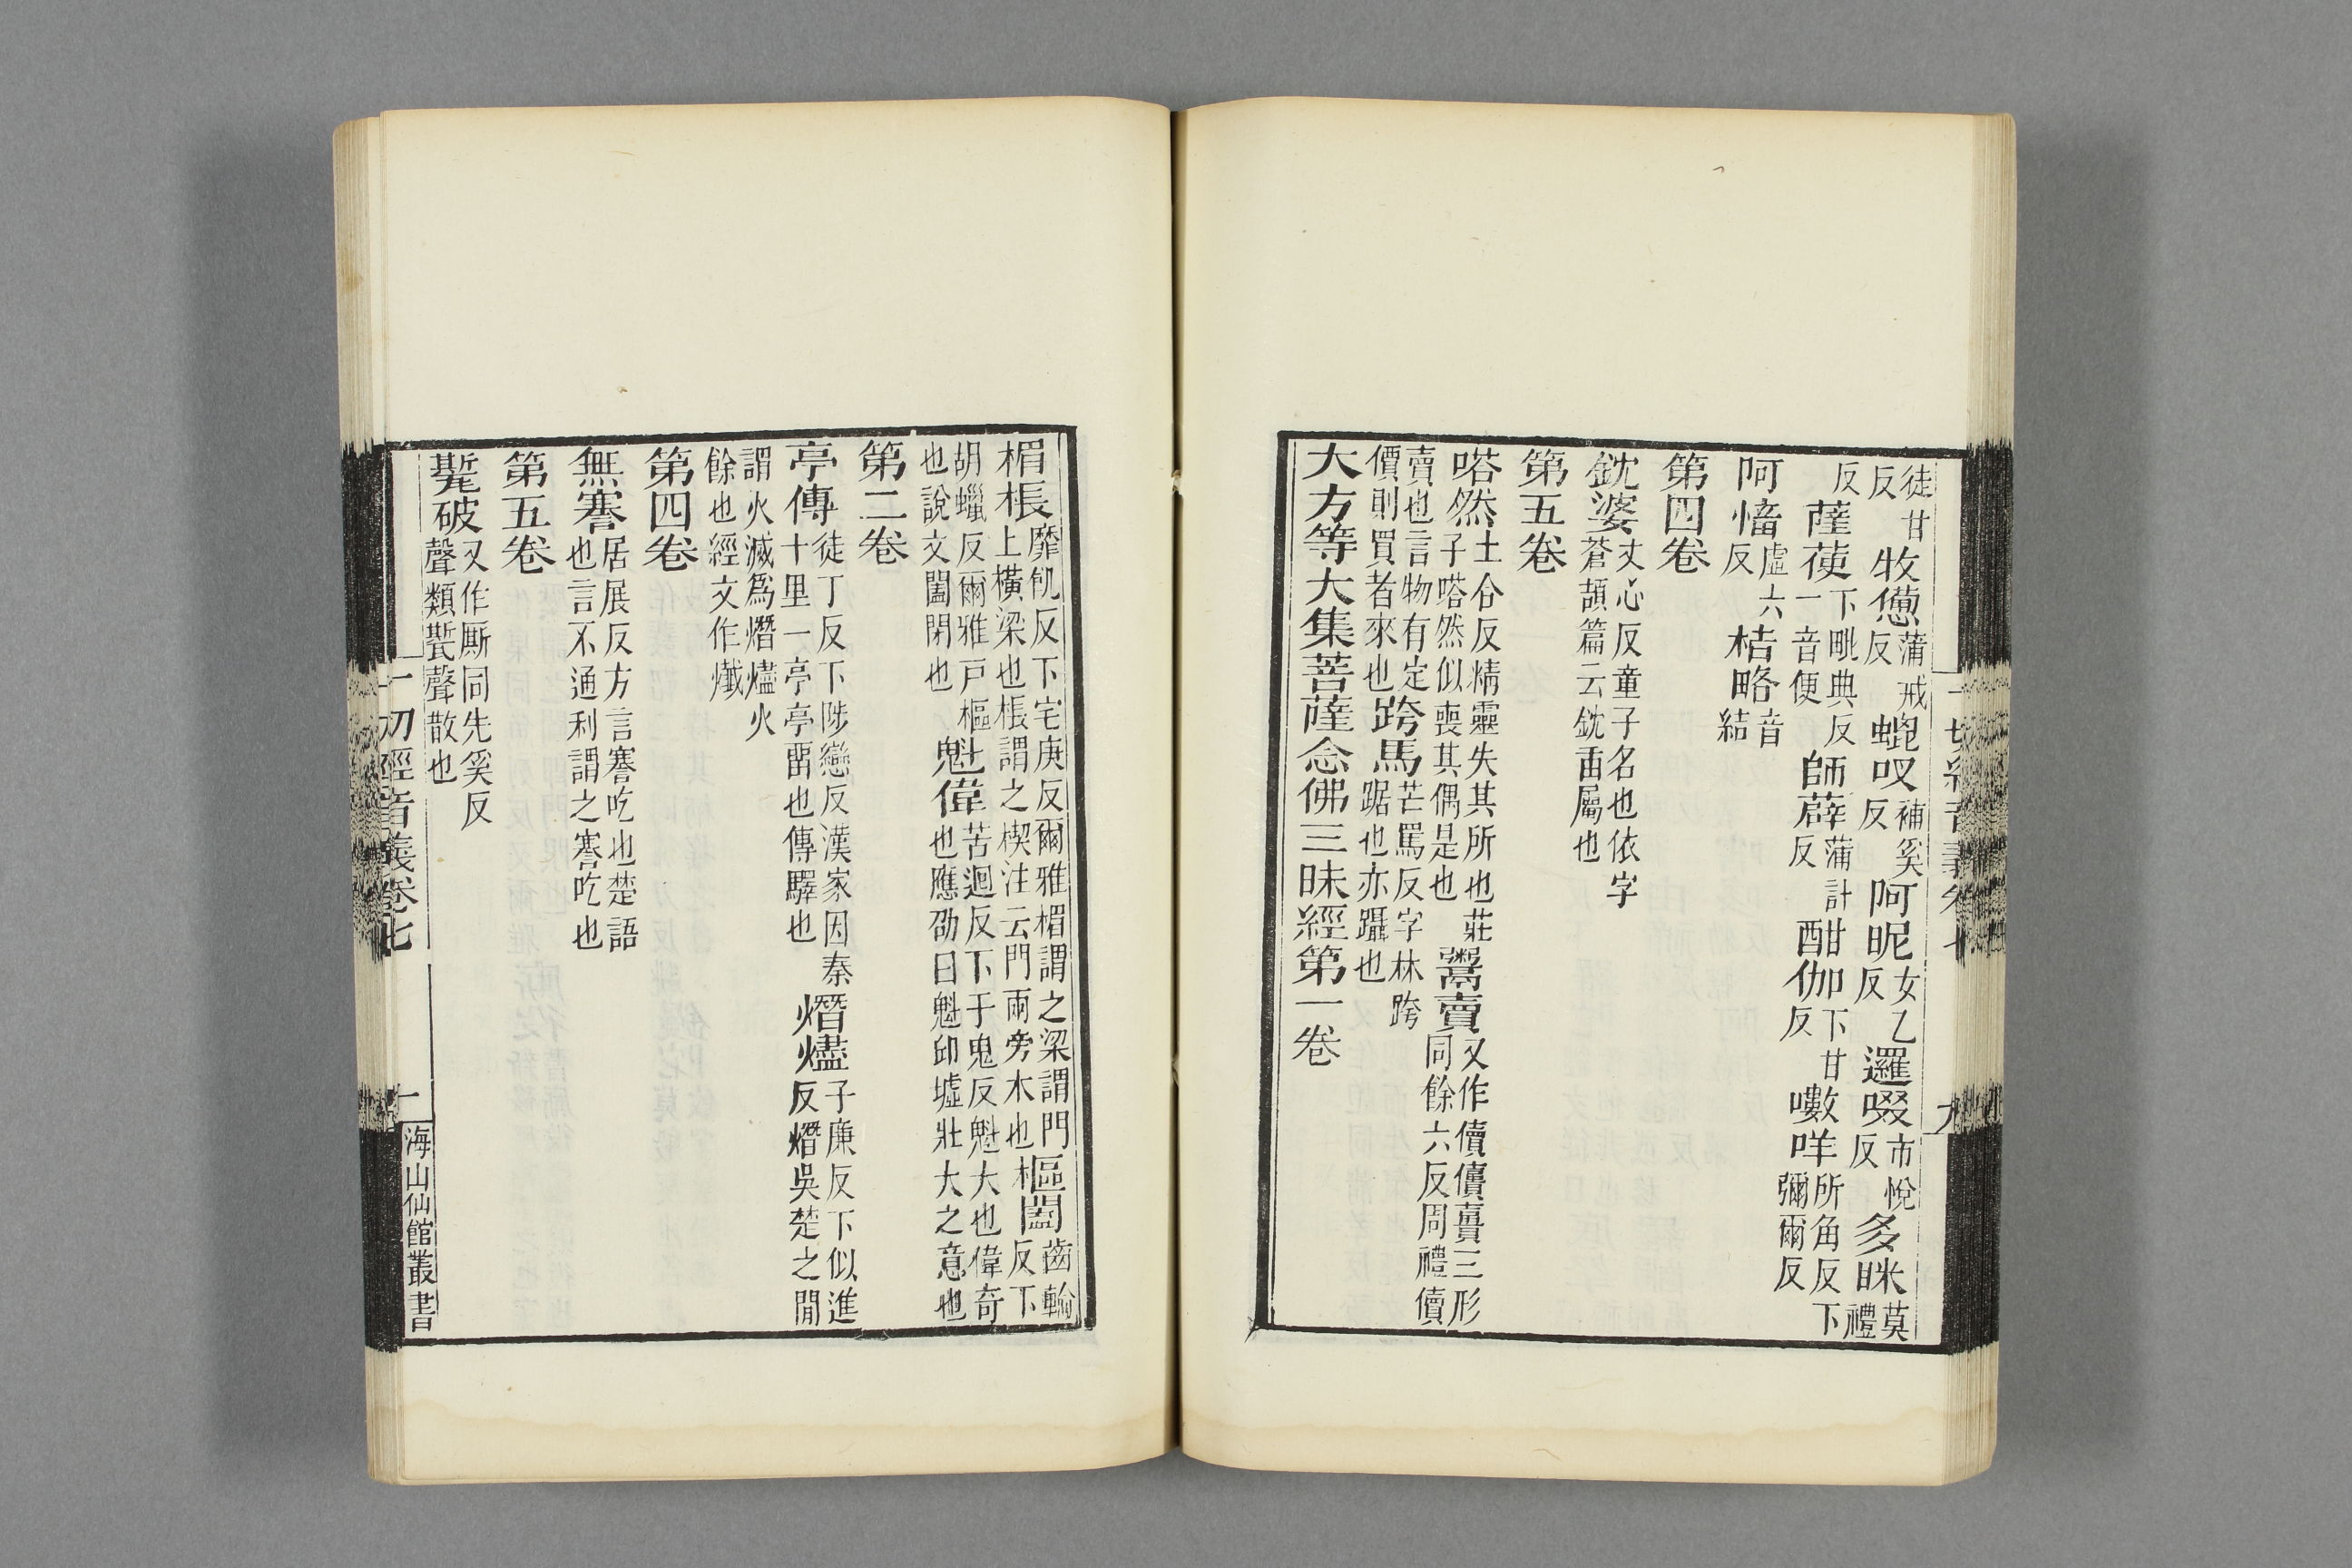 一切經音義卷七 九
徒甘反牧㒄蒲戒反蜫㕚補奚反阿昵女乙反邏啜市悅反多眯莫禮
反薩㢟下毗典反一音便師薜蒲計反酣下甘反嘋咩所角反下彌爾反
阿慉虛六反桔略音結
第四卷
鈂婆丈心反童子名也依字蒼頡篇云鈂臿屬也
第五卷
嗒然土合反精靈失其所也莊子嗒然似喪其偶是也鬻賣又作儥儥賣三形同餘六反周禮儥
賣也言物有定價則買者來也跨馬芒罵反字林跨踞也亦躡也
大方等大集菩薩念佛三昧經第一卷
楣棖靡飢反下宅庚反爾雅楣謂之梁謂門上橫梁也棖謂之楔注云門兩旁木也樞闔齒輸反下
胡蠟反爾雅戶樞也說文闔閉也魁偉苦迴反下于鬼反魁大也偉奇也應劭曰魁卸墟壯大之意也
第二卷
亭傳徒丁反下陟戀反漢家因秦十里一亭亭畱也傳驛也熸燼子廉反下似進反熸吳楚之閒
謂火滅爲熸燼火餘也經文作爁
第四卷
無謇居展反方言謇吃也楚語也言不通利謂之謇吃也
第五卷
㽄破又作厮同先奚反聲類㽄聲散也
一切經音義卷七 十
海山仙館叢書